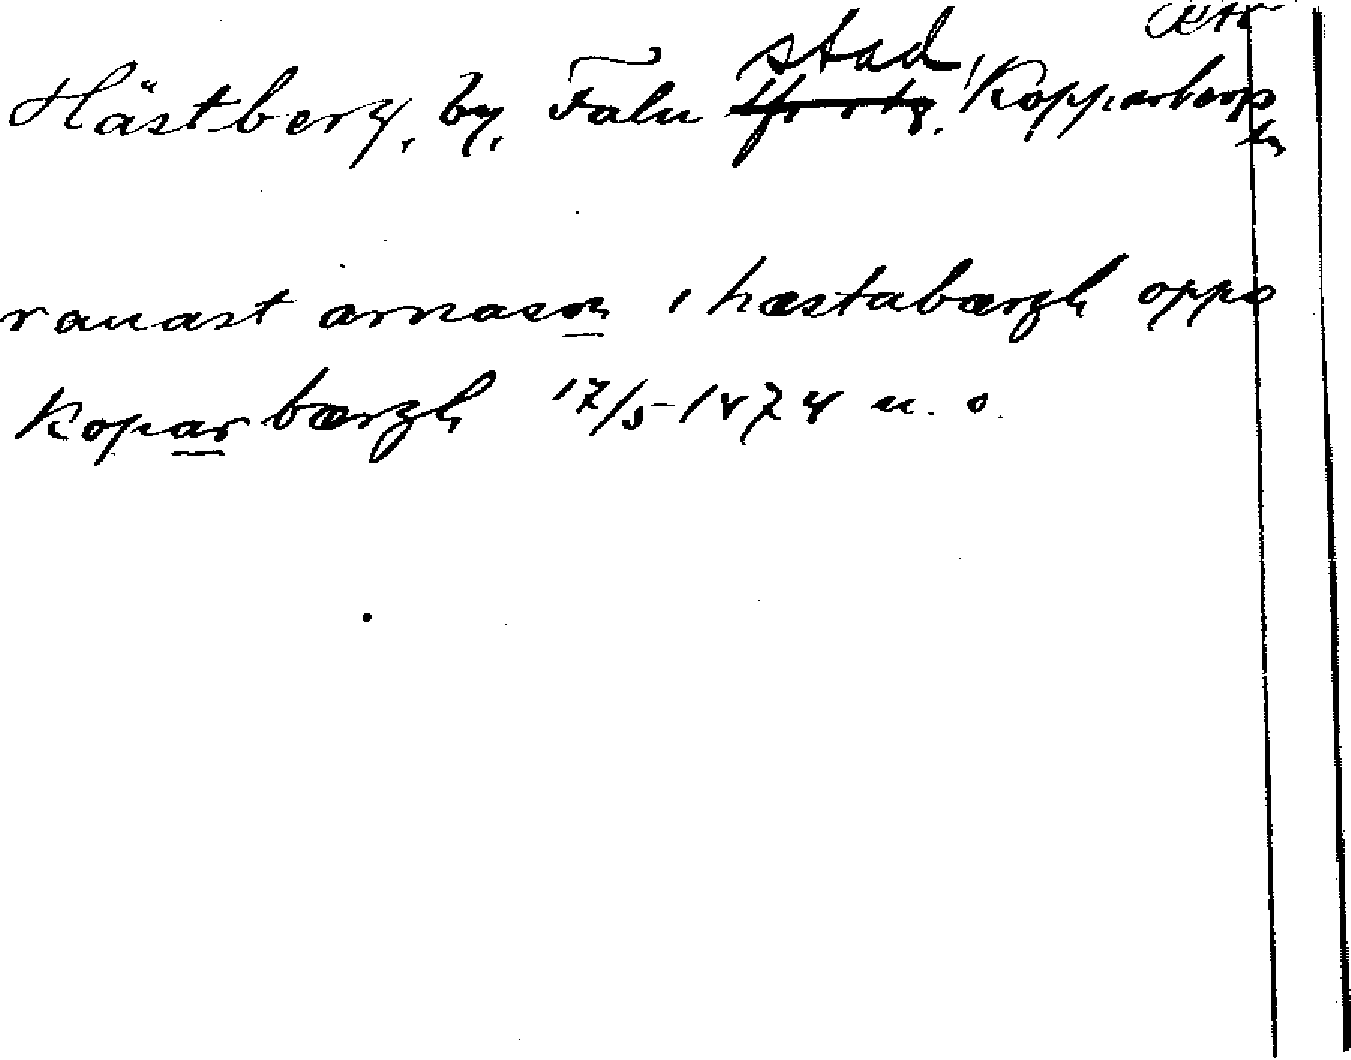 Hästberg, by, Falu stad, Kopparbergs
ln
rauast arnason i hæstabærgh oppo
Koparbærgh 17/5 1474 u. o.